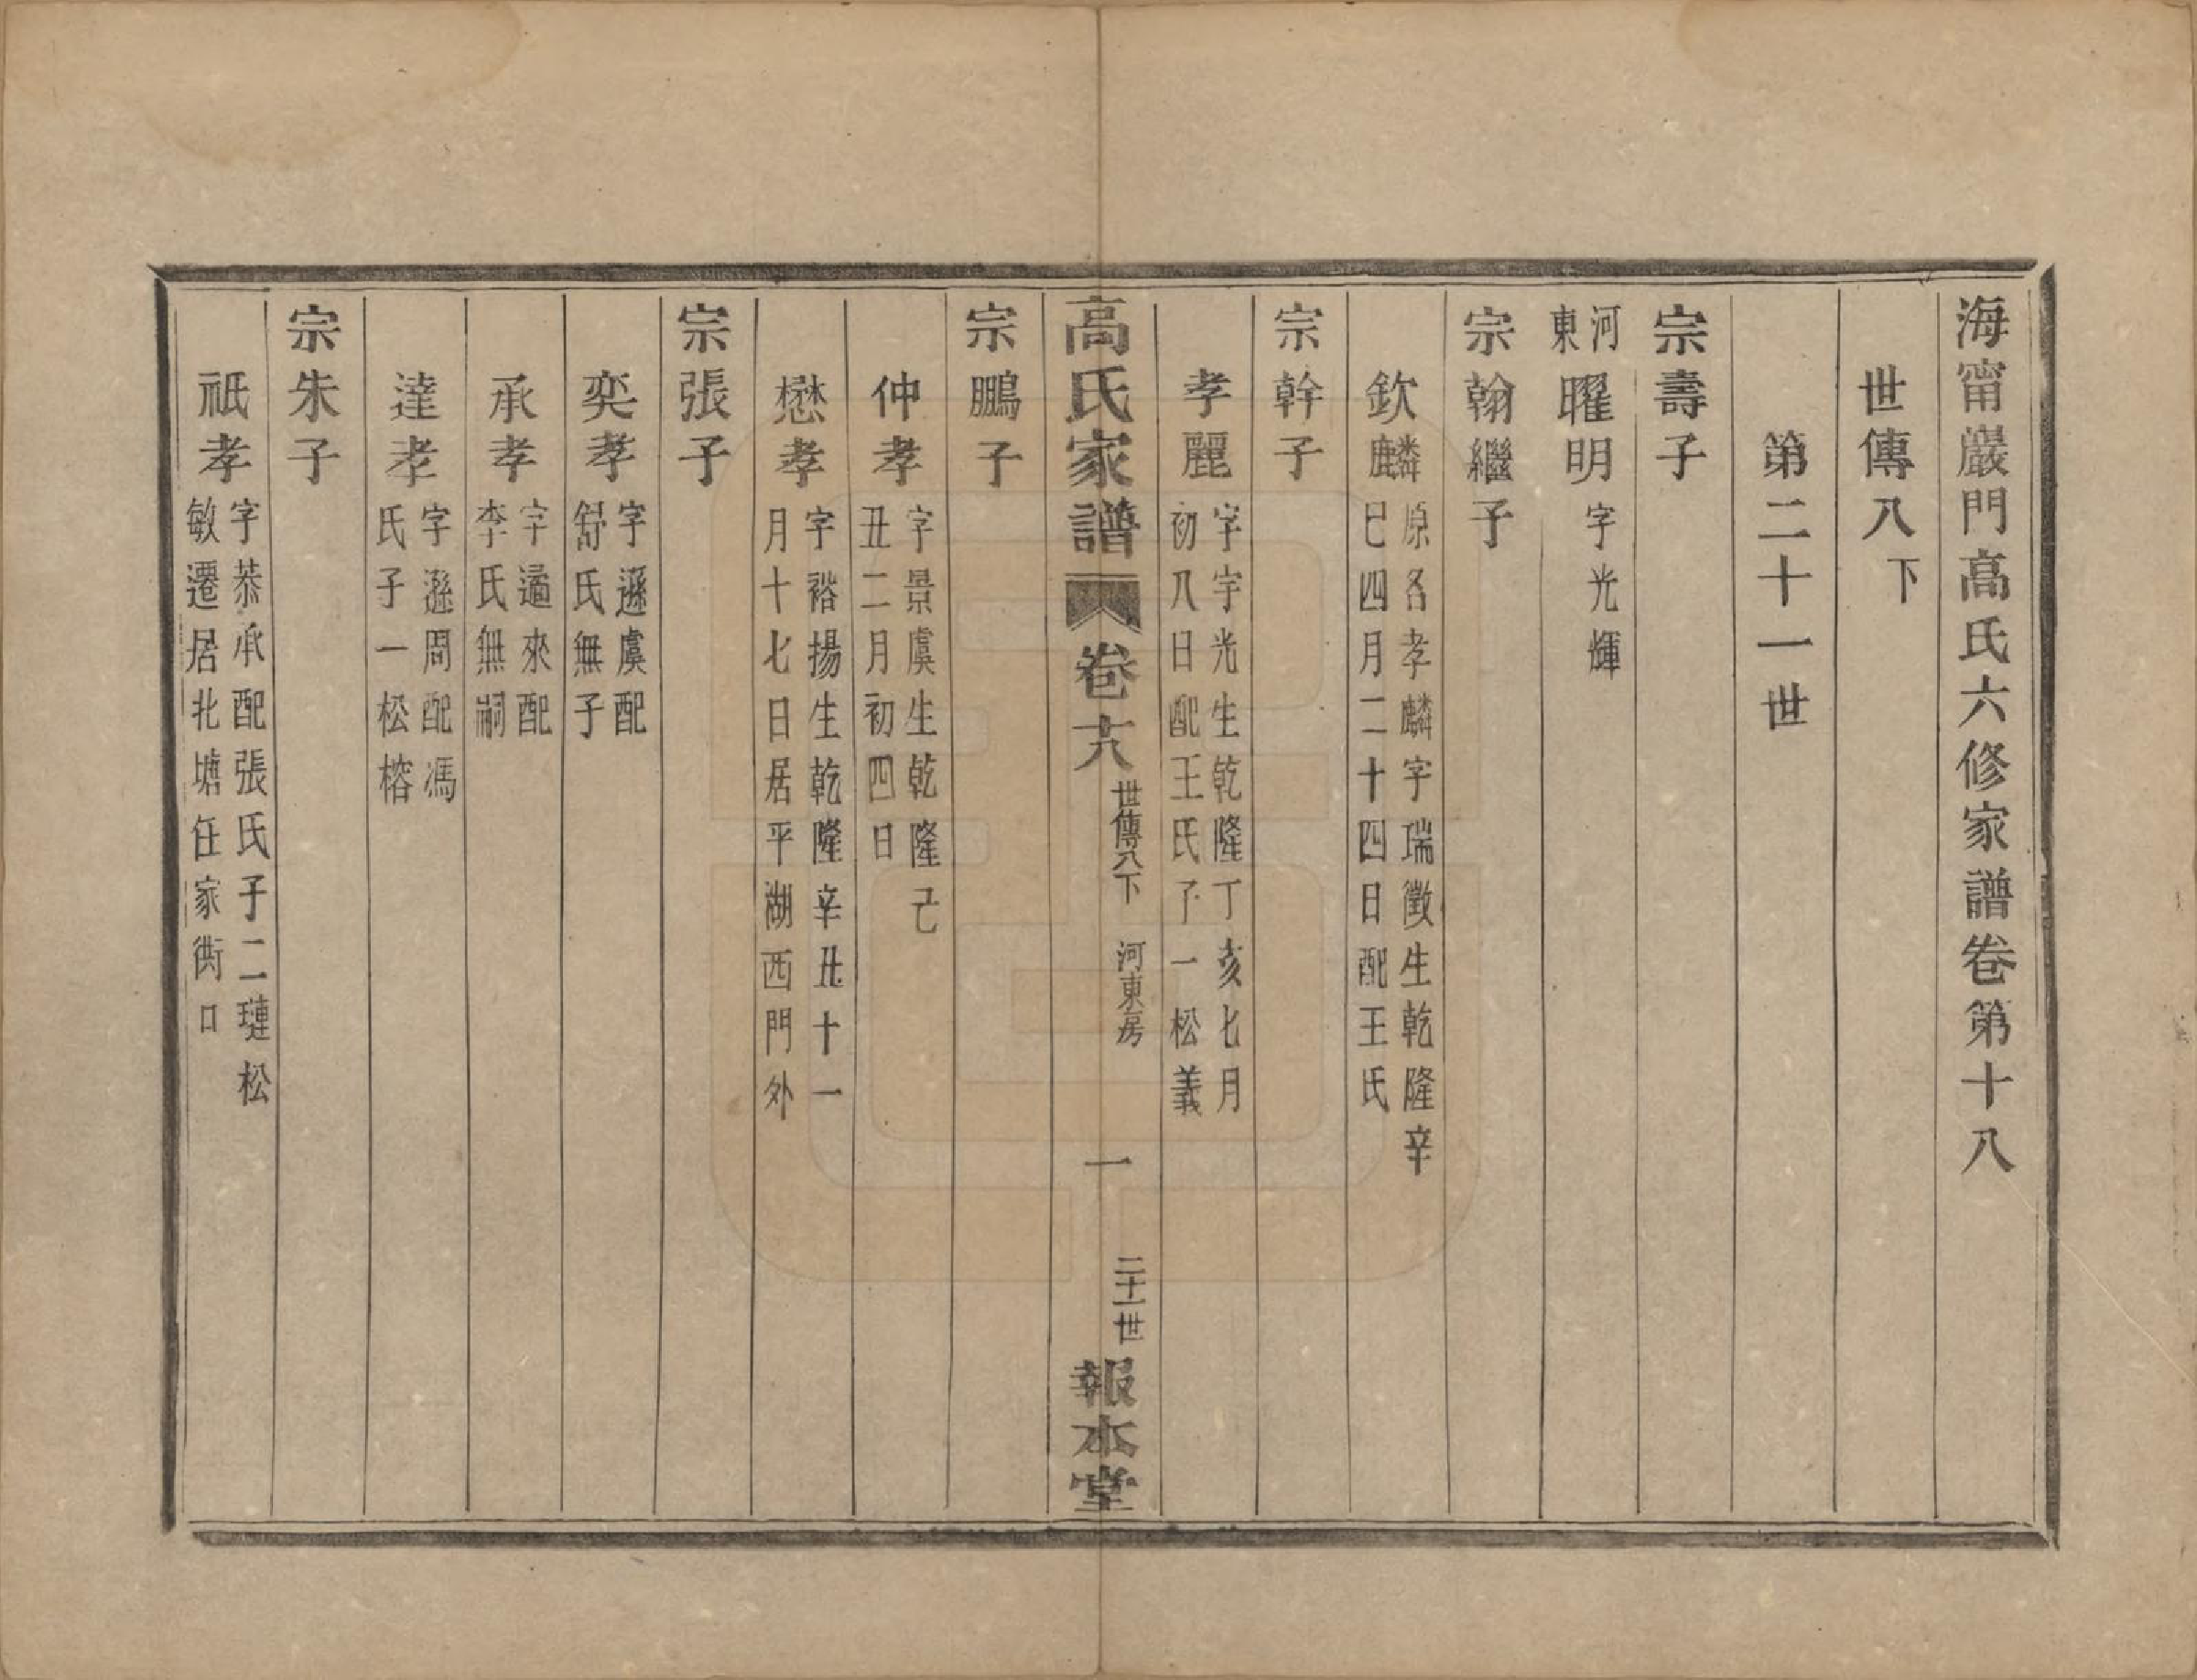 海甯巖門高氏六修家譜卷第十八
世傳八下
第二十一世
宗壽子
河東 曜明 字光輝
宗翰繼子
欽麟 原名孝麟字瑞徵生乾隆辛
巳四月二十四日配王氏
宗幹子
孝麗 字宇光生乾隆丁亥七月
初八日配王氏子一松義
高氏家譜 卷十八 世傳八下 河東房 一 二十一世 報本堂
宗鵬子
仲孝 字景虞生乾隆己
丑二月初四日
懋孝 字裕揚生乾隆辛丑十一
月十七日居平湖西門外
宗張子
奕孝 字遜虞配
舒氏無子
承孝 字逼來配
李氏無嗣
達孝 字遜周配馮
氏子一松榕
宗朱子
祇孝 字恭承配張氏子二璉松
敏遷居北塘任家衖口